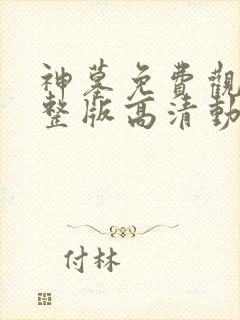 神墓免費觀
整版高清動
付林